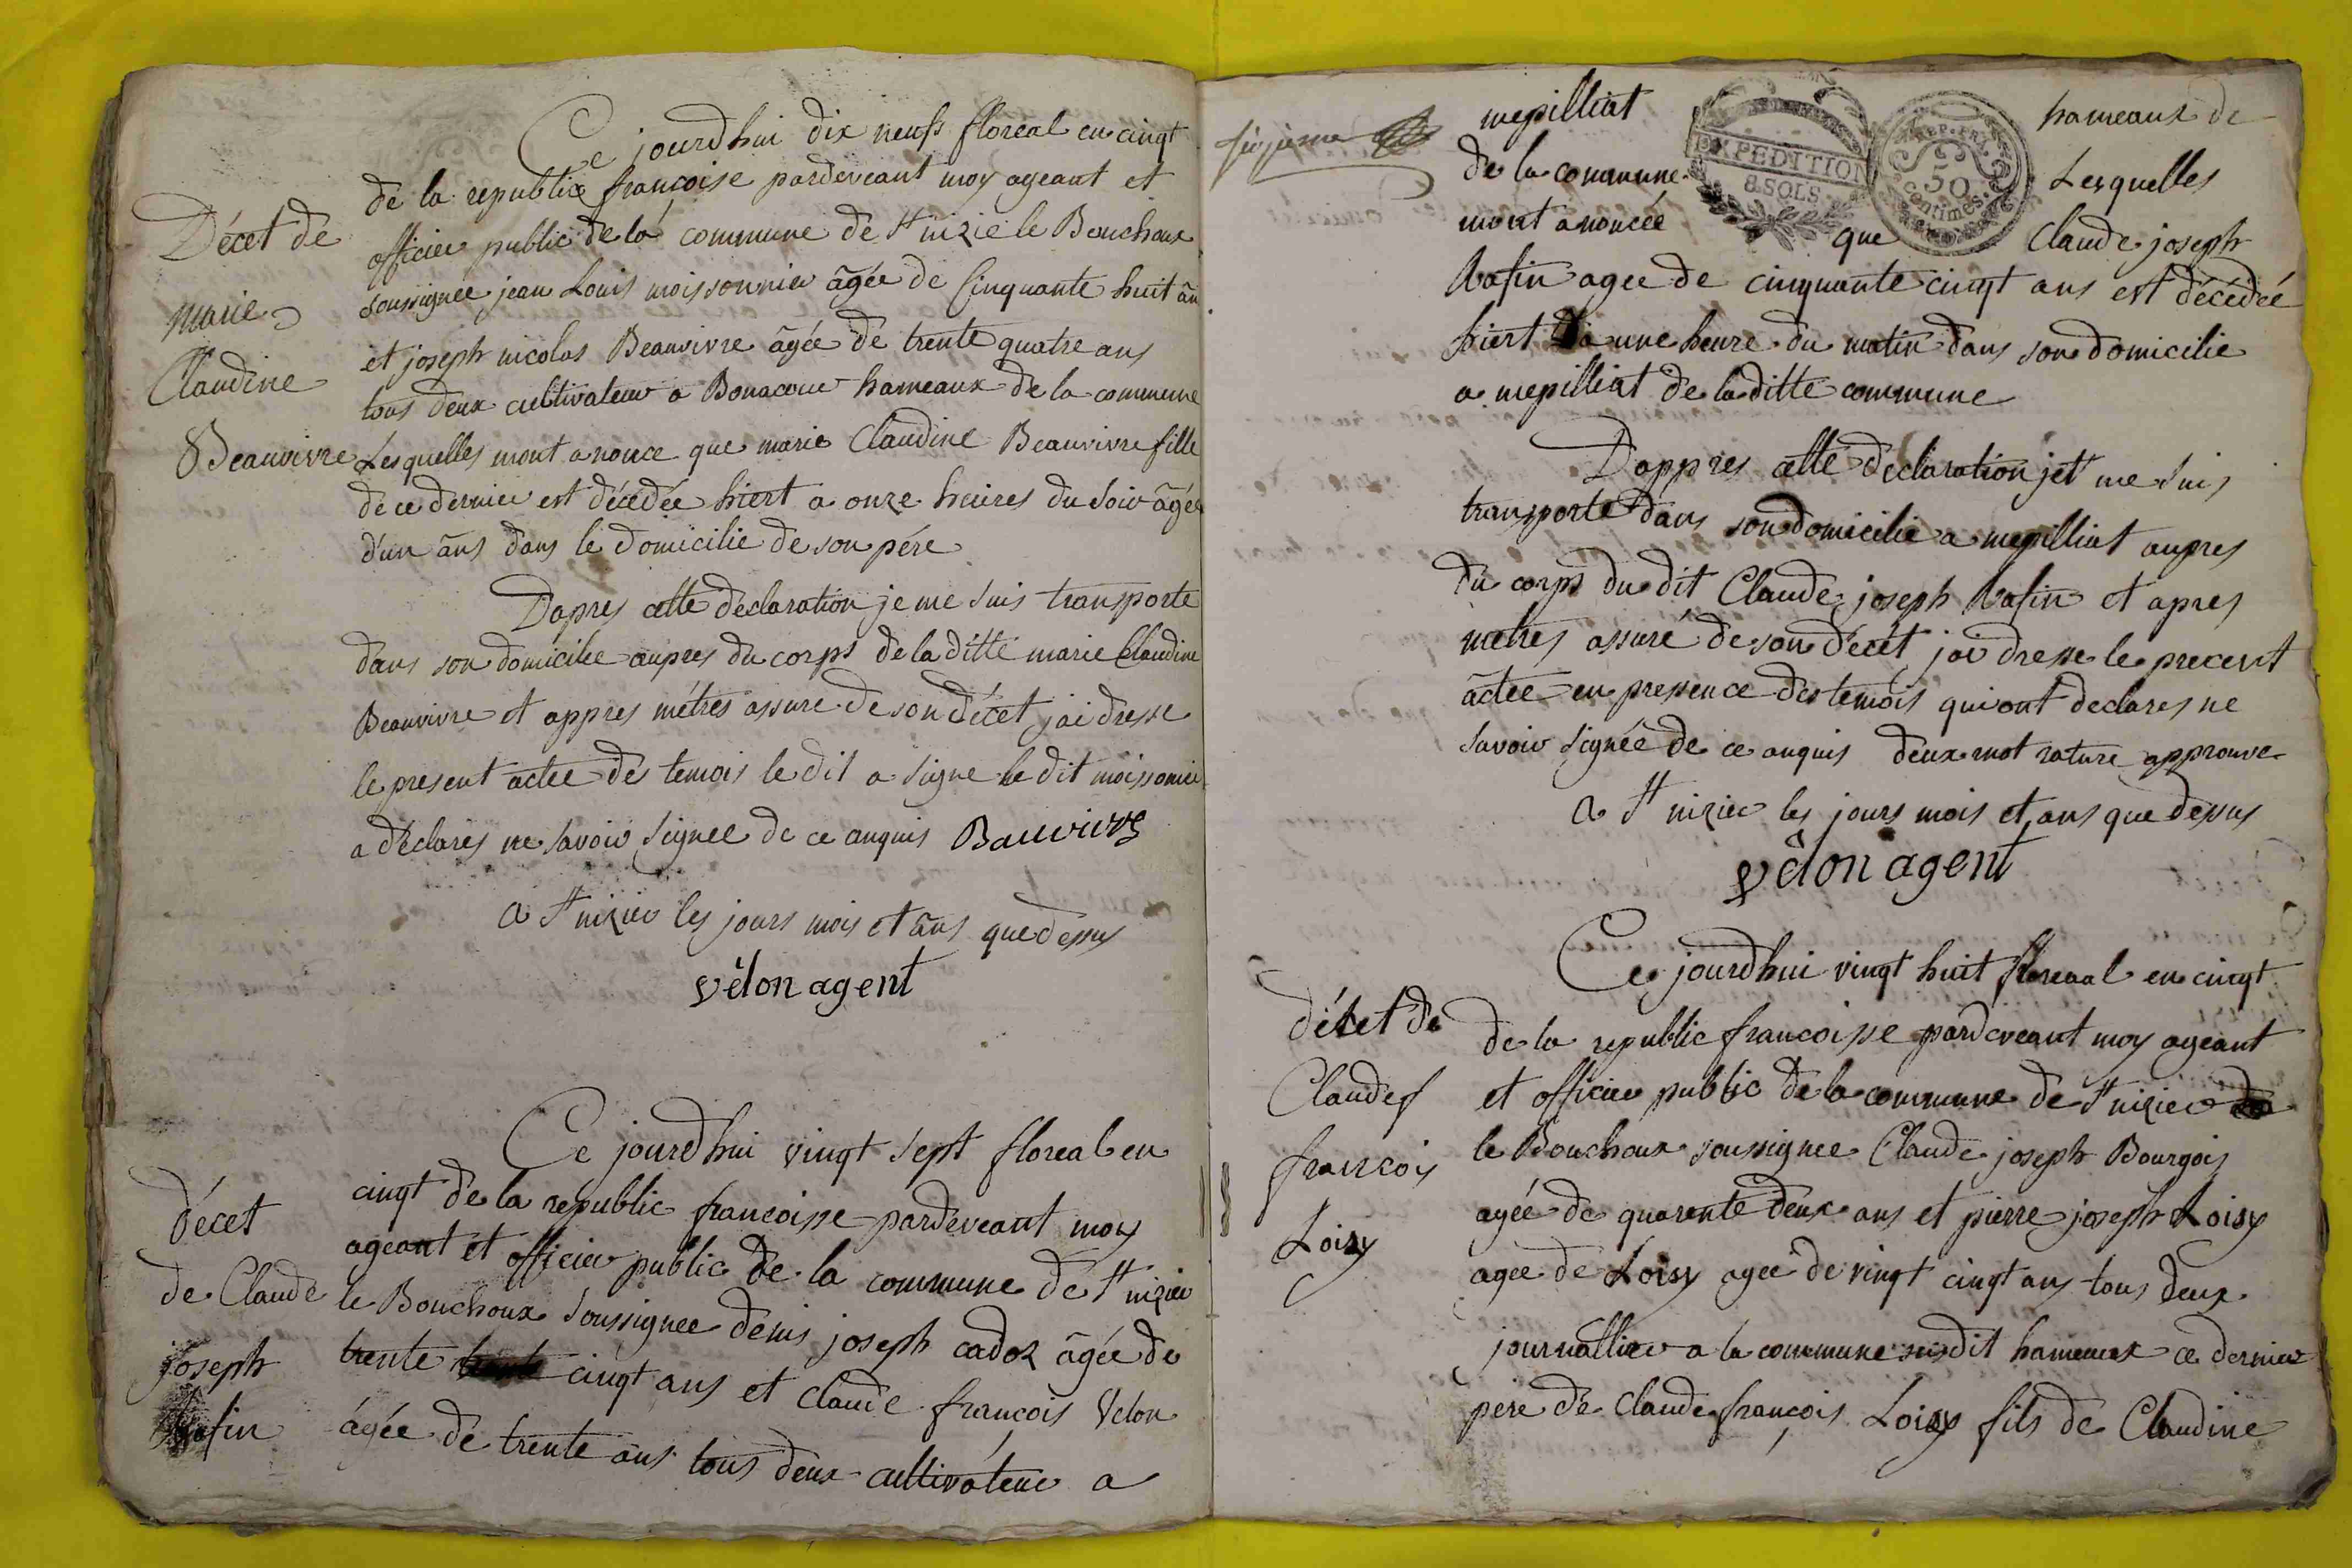 Ce jourdhui dix neufs floreal en cinqt
de la republice francoise pardeveant moy ageant et
officier public de la commune de St nizie le Bouchoux
soussignee jean Louis moissonnier âgée de Cinquante huit ân
et joseph nicolas Beauvivre âgée de trente quatre ans
tous deux cultivateur a Bonacour hameaux de la commune
Lesquelles mont anonce que marie Claudine Beauvivre fille
de ce dernier est décédée hiert a onze heures du Soir âgée
d'un âns dans le domicilie de son pére
Dapres cette déclaration je me Suis transporte
dans son domicilie aupres du corps de la ditte marie Claudine
Beauvivre et appres métres assure de son décet jai dresse
le present actee des temois le dit a signe le dit moissonier
a déclares ne savoir Signee de ce anquis Bauvivre
A St nizier les jours mois et âns que dessus
vélon agent
Décet de
marie
Claudine
Beauvivre
Ce jourdhui vingt Sept floreal en
cinqt de la republic francoisse pardeveant moy
ageant et officier public de la commune de St nizier
le Bouchoux Soussignee denis joseph cadoz âgée de
trente cinqt ans et claude françois Vélon
âgée de trente ans tous deux cultivateur a
décet
de Claude
joseph
Vafin
mepilliat hameaux de
de la commune Lesquelles
mont anoncée que Claude joseph
Vafin agee de cinquante cinqt ans est décédée
hiert a une heure du matin dans son domicilie
a mepilliat de la ditte commune
Dappres cette déclaration jet me suis
transporte dans son domicilie a mepilliat aupres
du corps du dit Claude joseph Vafin et apres
metres assuré de son décet jai dresse le precent
âctee en pressence des temois qui ont declares ne
savoir signée de ce anquis deux mot rature approuve
A St nizier les jours mois et ans que dessus
vélon agent
EXPEDITION
8 SOLS
REP. FRA.
50
centimes
Ce jourdhui vingt huit floreaal en cinqt
de la republic francoisse pardeveant moy ageant
et officier public de la commune de St nizier
le Bouchoux soussignee Claude joseph Bourgois
agée de quarente deux ans et pierre joseph Loisy
agee de Loisy agee de vingt cinqt ans tous deux
journallier a la commune susdit hameaux ce dernier
pere de claude françois Loisy fils de Claudine
décet de
Claude f
francois
Loisy